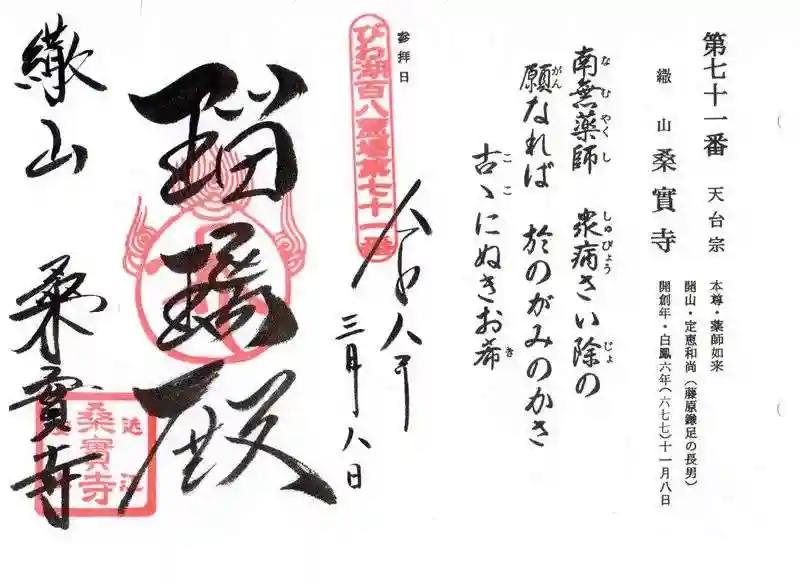 第七十一番 天台宗
繖山 桑實寺
本尊・薬師如来
開山・定恵和尚(藤原鎌足の長男)
開創年・白鳳六年(六七七)十一月八日
南無薬師 衆病さい除の
なむやくし しゅびょう じょ
願なれば 於のがみのかさ
がん
古ゝにぬきお希
ここ き
参拝日
びわ湖百八霊場第七十一番
八年
三月八日
瑠璃殿
繖山 桑實寺
桑實寺